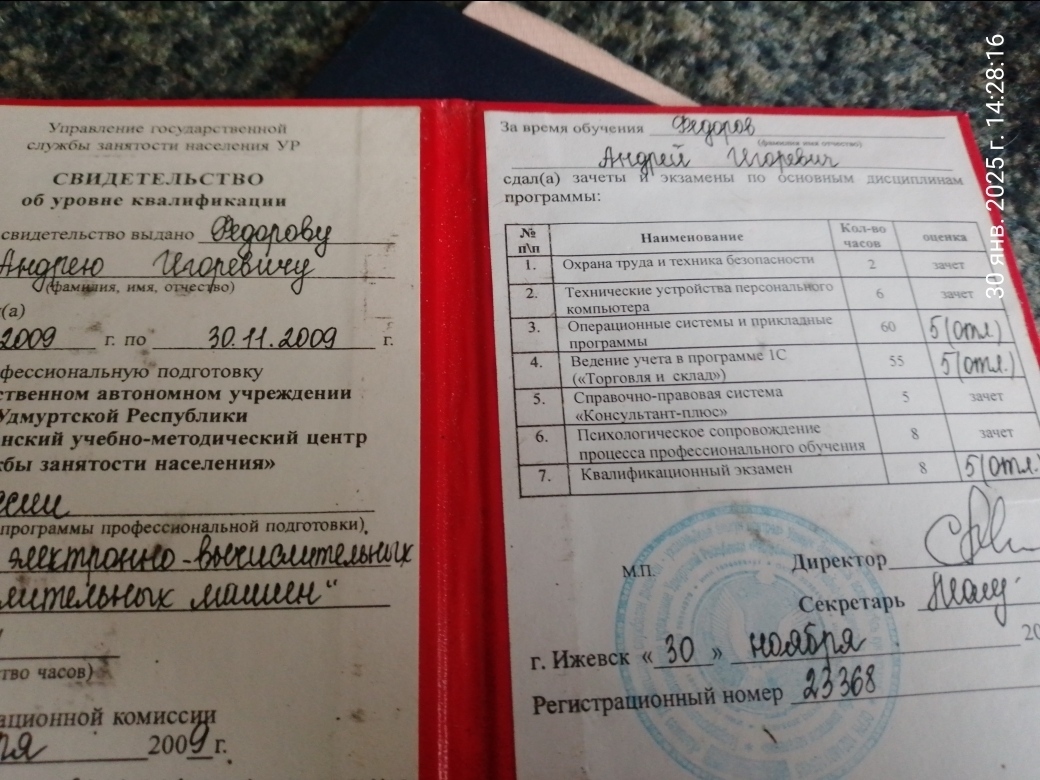 Управление государственной
службы занятости населения УР
СВИДЕТЕЛЬСТВО
об уровне квалификации
свидетельство выдано Федорову
Андрею Игоревичу
(фамилия, имя, отчество)
(а)
2009 г. по 30.11.2009 г.
фессиональную подготовку
ственном автономном учреждении
Удмуртской Республики
нский учебно-методический центр
жбы занятости населения»
ссии
программы профессиональной подготовки),
электронно-вычислительных
лительных машин"
тво часов)
ационной комиссии
ря 2009 г.
За время обучения Федоров
(фамилия имя отчество)
Андрей Игоревич
сдал(а) зачеты и экзамены по основным дисциплинам
программы:
№ п\п Наименование Кол-во часов оценка
1. Охрана труда и техника безопасности 2 зачет
2. Технические устройства персонального компьютера 6 зачет
3. Операционные системы и прикладные программы 60 5(отл.)
4. Ведение учета в программе 1С («Торговля и склад») 55 5(отл.)
5. Справочно-правовая система «Консультант-плюс» 5 зачет
6. Психологическое сопровождение процесса профессионального обучения 8 зачет
7. Квалификационный экзамен 8 5(отл.)
М.П.
Директор
Секретарь
г. Ижевск «30» ноября 20
Регистрационный номер 23368
30 янв. 2025 г. 14:28:16